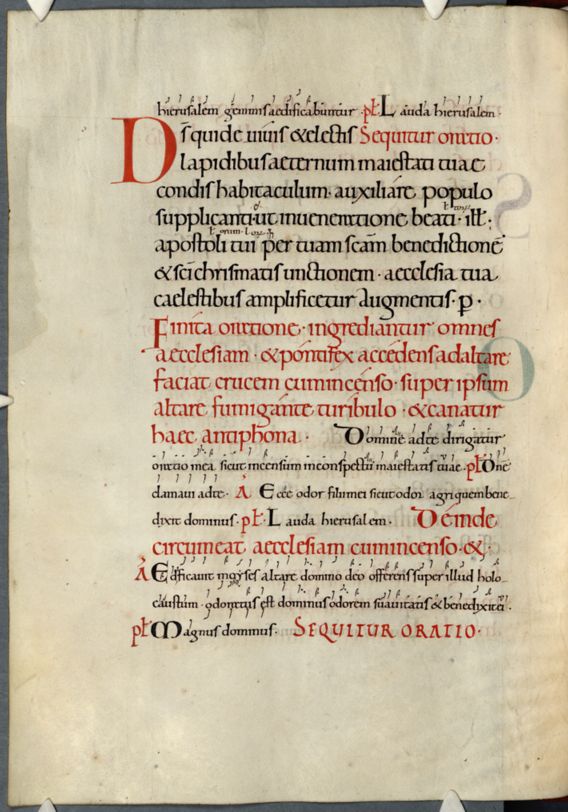 hierusalem gemmis aedificabuntur · pł Lauda hierusalem ·
Dš qui de uiuis & electis Sequitur oratio ·
lapidibus aeternum maiestati tuae
condis habitaculum · auxiliare populo
supplicanti · ut in uenenatione beati · ill̄ ·
apostoli tui per tuam scām benedictionē
& sci chrismatis unctionem · aecclesia tua
caelestibus amplificetur augmentis · p ·
Finita oratione · ingrediantur omnes
aecclesiam · & pontifex accedens ad altare
faciat crucem cum incenso · super ipsum
altare fumigante turibulo · & canatur
haec antiphona · Domine ad te dirigatur
oratio mea sicut incensum in conspectu maiestatis tuae · pł Dne
clamaui ad te · A Ecce odor filii mei sicut odor agri quem bene
dixit dominus · pł · Lauda hierusalem · Deinde
circumeat aecclesiam cum incenso · &
A Edificauit moyses altare domino deo offerens super illud holo
caustum · odoratus est dominus odorem suauitatis & benedixit ei ·
pł Magnus dominus · SEQUITUR ORATIO ·